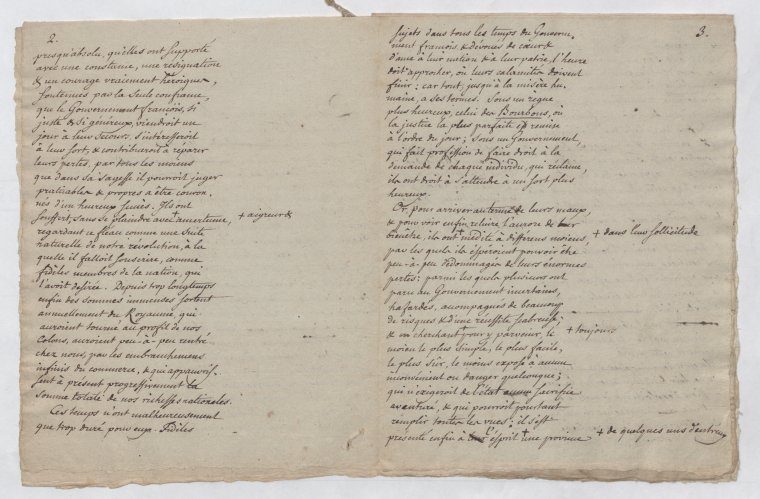 2.
presqu'absolu, qu'elles ont supporté
avec une constance, une résignation
& un courage vraiment héroïques,
soutenues par la seule confiance
que le Gouvernement françois, si
juste & si généreux, viendroit un
jour à leur secours, s'intéresseroit
à leur sort, & contribueroit à réparer
leurs pertes, par tous les moiens
que dans sa sagesse il pourroit juger
praticables & propres a être couron-
nés d'un heureux succès. Ils ont
souffert, sans se plaindre avec + amertume,
+ aigreur &
regardant ce fléau comme une suite
naturelle de notre révolution, à la
quelle il falloit souscrire, comme
fidèles membres de la nation, qui
l'avoit desirée. Depuis trop longtemps
enfin des sommes immenses sortent
annuellement du Royaume, qui
auroient tourné au profit de nos
Colons, auroient peu-à-peu rentré
chez nous, par les embranchemens
infinis du commerce, & qui appauvris-
sent à présent progressivement la
somme totale de nos richesses nationales.
Ces temps n'ont malheureusement
que trop duré pour eux. Fidèles
3.
sujets dans tous les temps du Gouverne-
ment françois & dévoués de cœur &
d'ame à leur nation & à leur patrie, l'heure
doit approcher, où leurs calamités doivent
finir; car tout, jusqu'à la misère hu-
maine, a ses termes. Sous un règne
plus heureux, celui des Bourbons, où
la justice la plus parfaite est remise
à l'ordre du jour; sous un Gouvernement,
qui fait profession de faire droit à la
demande de chaque individu, qui réclame,
ils ont droit à s'attendre à un sort plus
heureux.
Or, pour arriver au terme de leurs maux,
& pour voir enfin reluire l'aurore de leur
bienêtre, ils ont + médité à différens moiens,
+ dans leur sollicitude
par les quels ils espéroient pouvoir être
peu-à-peu dédommagés de leurs énormes
pertes: parmi les quels plusieurs ont
paru au Gouvernement incertains,
hasardés, acompagnés de beaucoup
de risques & d'une réussite scabreuse;
& en cherchant + pour y parvenir, le
+ toujours
moien le plus simple, le plus facile,
le plus sûr, le moins exposé à aucun
inconvénient ou danger quelconque;
qui n'exigeroit de l'état aucun sacrifice
aventuré, & qui pourroit pourtant
remplir toutes les vues; il s'est
présenté enfin à l'esprit + une province
+ de quelques uns d'entreux